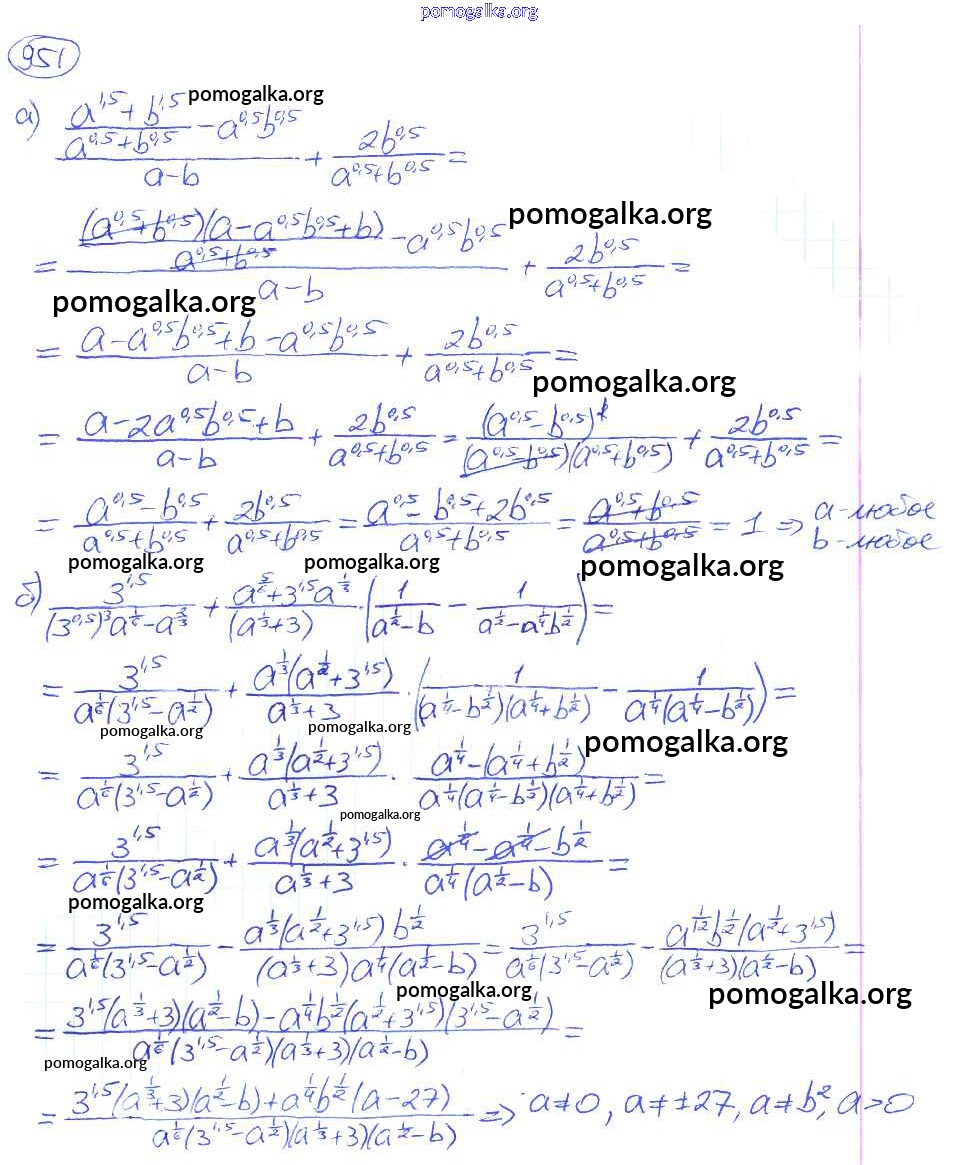 pomogalka.org
951
а) ((a^1,5 + b^1,5)/(a^0,5 + b^0,5) − a^0,5 b^0,5)/(a−b) + 2b^0,5/(a^0,5 + b^0,5) = pomogalka.org
= ((a^0,5 + b^0,5)(a − a^0,5 b^0,5 + b)/(a^0,5 + b^0,5) − a^0,5 b^0,5)/(a−b) + 2b^0,5/(a^0,5 + b^0,5) = pomogalka.org
pomogalka.org
= (a − a^0,5 b^0,5 + b − a^0,5 b^0,5)/(a−b) + 2b^0,5/(a^0,5 + b^0,5) =
pomogalka.org
= (a − 2a^0,5 b^0,5 + b)/(a−b) + 2b^0,5/(a^0,5 + b^0,5) = (a^0,5 − b^0,5)^2/((a^0,5 − b^0,5)(a^0,5 + b^0,5)) + 2b^0,5/(a^0,5 + b^0,5) =
= (a^0,5 − b^0,5)/(a^0,5 + b^0,5) + 2b^0,5/(a^0,5 + b^0,5) = (a^0,5 − b^0,5 + 2b^0,5)/(a^0,5 + b^0,5) = (a^0,5 + b^0,5)/(a^0,5 + b^0,5) = 1 ⇒ a - любое
b - любое
pomogalka.org pomogalka.org pomogalka.org
б) 3^1,5/((3^0,5)^3 a^(1/6) − a^(2/3)) + (a^(5/6) + 3^1,5 a^(1/3))/(a^(1/3) + 3) · (1/(a^(1/2) − b) − 1/(a^(1/2) − a^(1/4) b^(1/2))) =
= 3^1,5/(a^(1/6)(3^1,5 − a^(1/2))) + a^(1/3)(a^(1/2) + 3^1,5)/(a^(1/3) + 3) · (1/((a^(1/4) − b^(1/2))(a^(1/4) + b^(1/2))) − 1/(a^(1/4)(a^(1/4) − b^(1/2)))) =
pomogalka.org pomogalka.org pomogalka.org
= 3^1,5/(a^(1/6)(3^1,5 − a^(1/2))) + a^(1/3)(a^(1/2) + 3^1,5)/(a^(1/3) + 3) · (a^(1/4) − (a^(1/4) + b^(1/2)))/(a^(1/4)(a^(1/4) − b^(1/2))(a^(1/4) + b^(1/2))) =
pomogalka.org
= 3^1,5/(a^(1/6)(3^1,5 − a^(1/2))) + a^(1/3)(a^(1/2) + 3^1,5)/(a^(1/3) + 3) · (a^(1/4) − a^(1/4) − b^(1/2))/(a^(1/4)(a^(1/2) − b)) =
pomogalka.org
= 3^1,5/(a^(1/6)(3^1,5 − a^(1/2))) − a^(1/3)(a^(1/2) + 3^1,5) b^(1/2)/((a^(1/3) + 3) a^(1/4)(a^(1/2) − b)) = 3^1,5/(a^(1/6)(3^1,5 − a^(1/2))) − a^(1/12) b^(1/2)(a^(1/2) + 3^1,5)/((a^(1/3) + 3)(a^(1/2) − b)) =
pomogalka.org pomogalka.org
= (3^1,5(a^(1/3) + 3)(a^(1/2) − b) − a^(1/4) b^(1/2)(a^(1/2) + 3^1,5)(3^1,5 − a^(1/2)))/(a^(1/6)(3^1,5 − a^(1/2))(a^(1/3) + 3)(a^(1/2) − b)) =
pomogalka.org
= (3^1,5(a^(1/3) + 3)(a^(1/2) − b) + a^(1/4) b^(1/2)(a − 27))/(a^(1/6)(3^1,5 − a^(1/2))(a^(1/3) + 3)(a^(1/2) − b)) ⇒ a ≠ 0, a ≠ ±27, a ≠ b^2, a > 0